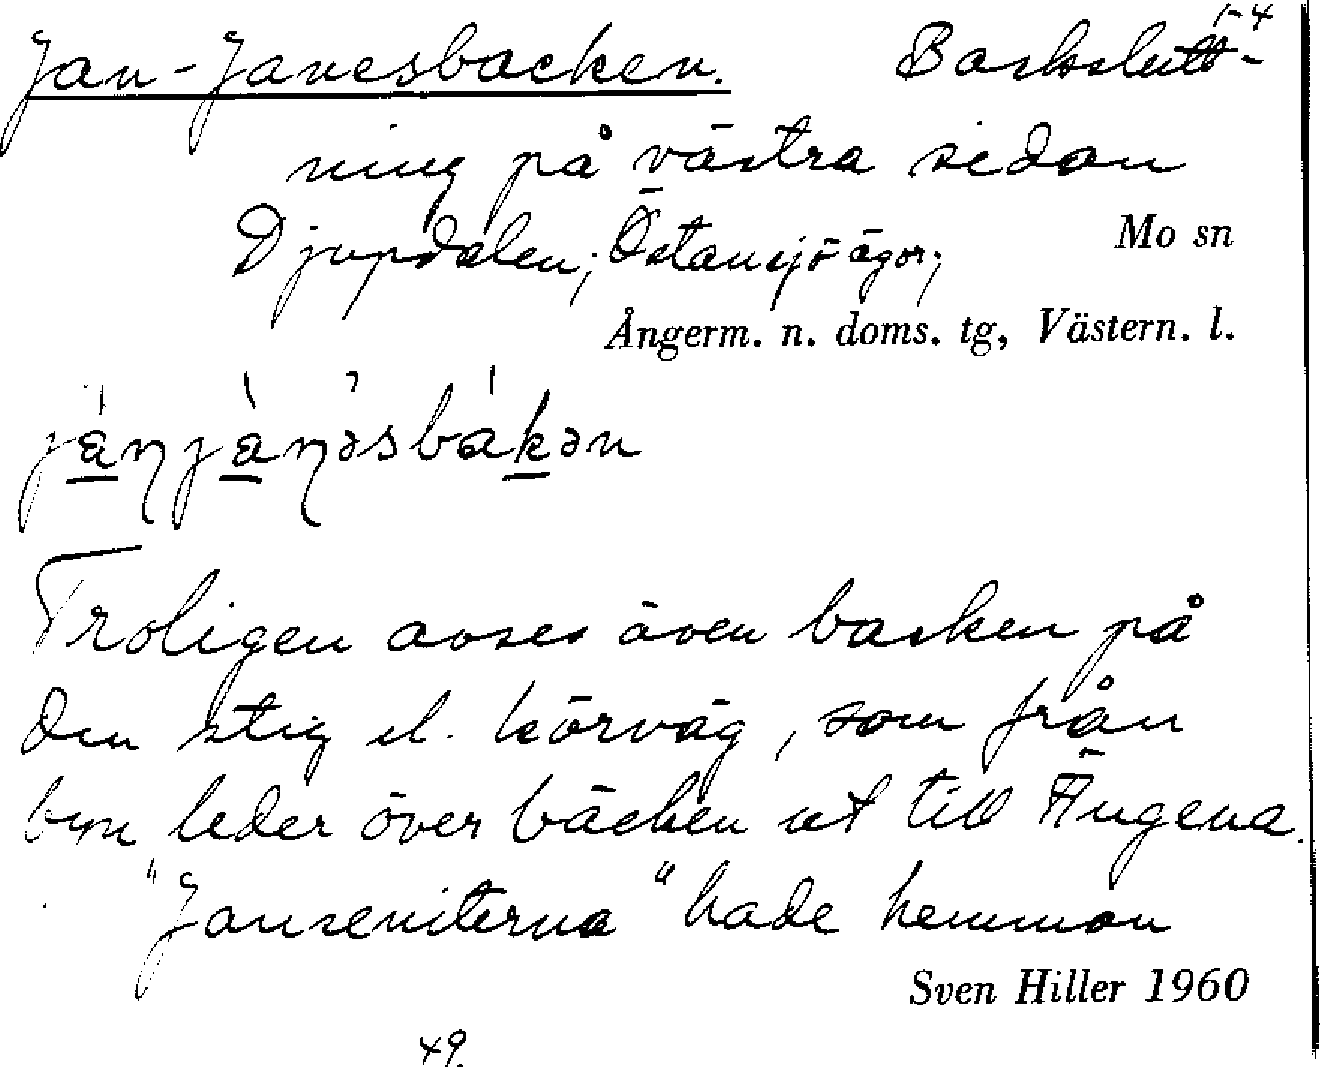 1-4
Jan-Janesbacken. Backslutt-
ning på västra sidan
Djupdalen; Östansjö ägor; Mo sn
Ångerm. n. doms. tg, Västern. l.
jànjànəsbákən
Troligen avses även backen på
den stig el. körväg, som från
byn leder över bäcken ut till Ängena.
"Janseniterna" hade hemman
Sven Hiller 1960
49.